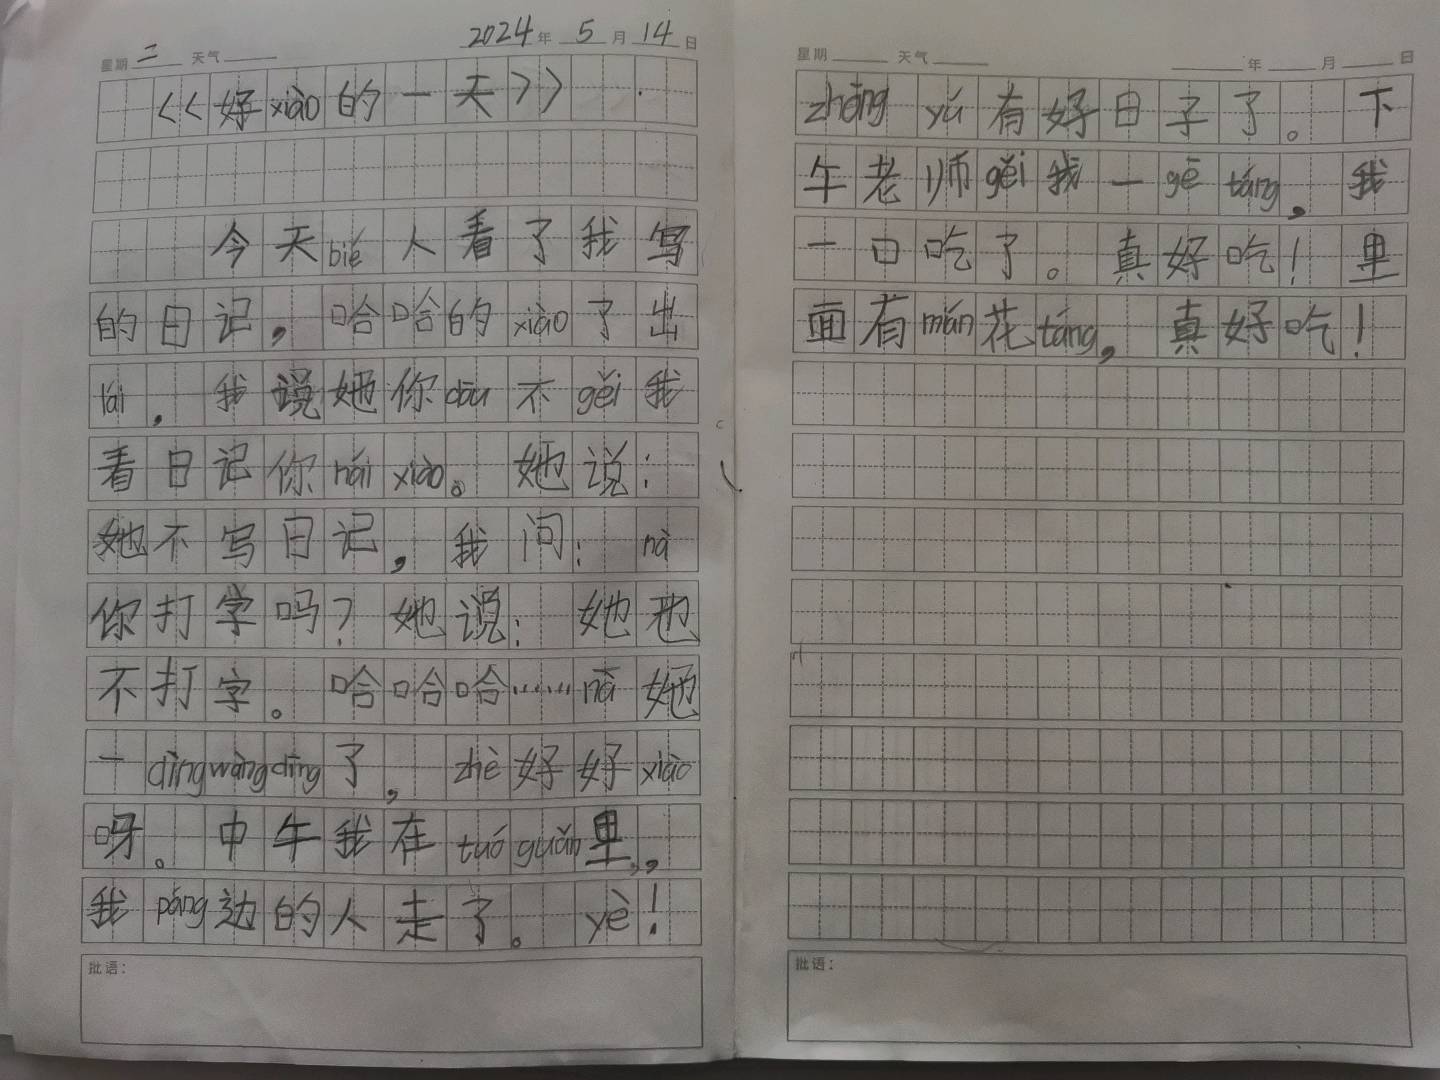 星期 二 天气 2024 年 5 月 14 日
<<好xiào的一天>>
今天bié人看了我写
的日记，哈哈的xiào了出
lái，我说她你dōu不gěi我
看日记你hái xiào。她说：
她不写日记，我问：nà
你打字吗？她说：她也
不打字。哈哈哈……nā她
一dìngwàngdìng了，zhè好好xiào
呀。中午我在tuó guǎn里，，
我páng边的人走了。yè！
批语：
星期 天气 年 月 日
zhāng yú有好日子了。下
午老师gěi我一gē táng，我
一口吃了。真好吃！里
面有mán花táng，真好吃！
批语：